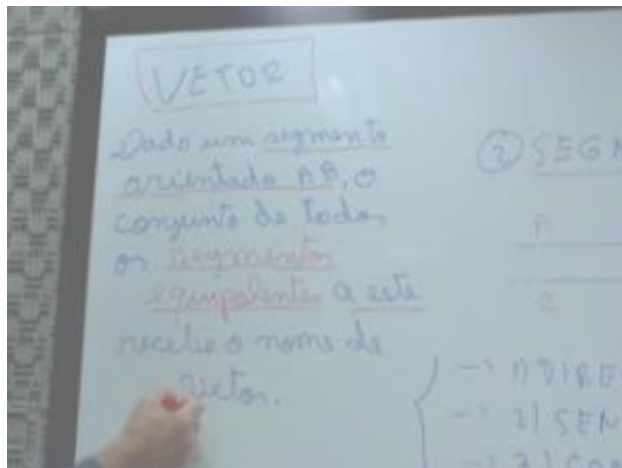 VETOR
Dado um segmento
orientado AB, o
conjunto de todos
os segmentos
equipolentes a este
recebe o nome de
vetor.
② SEGM
A
C
→ 1) DIRE
→ 2) SEN
→ 3) COM